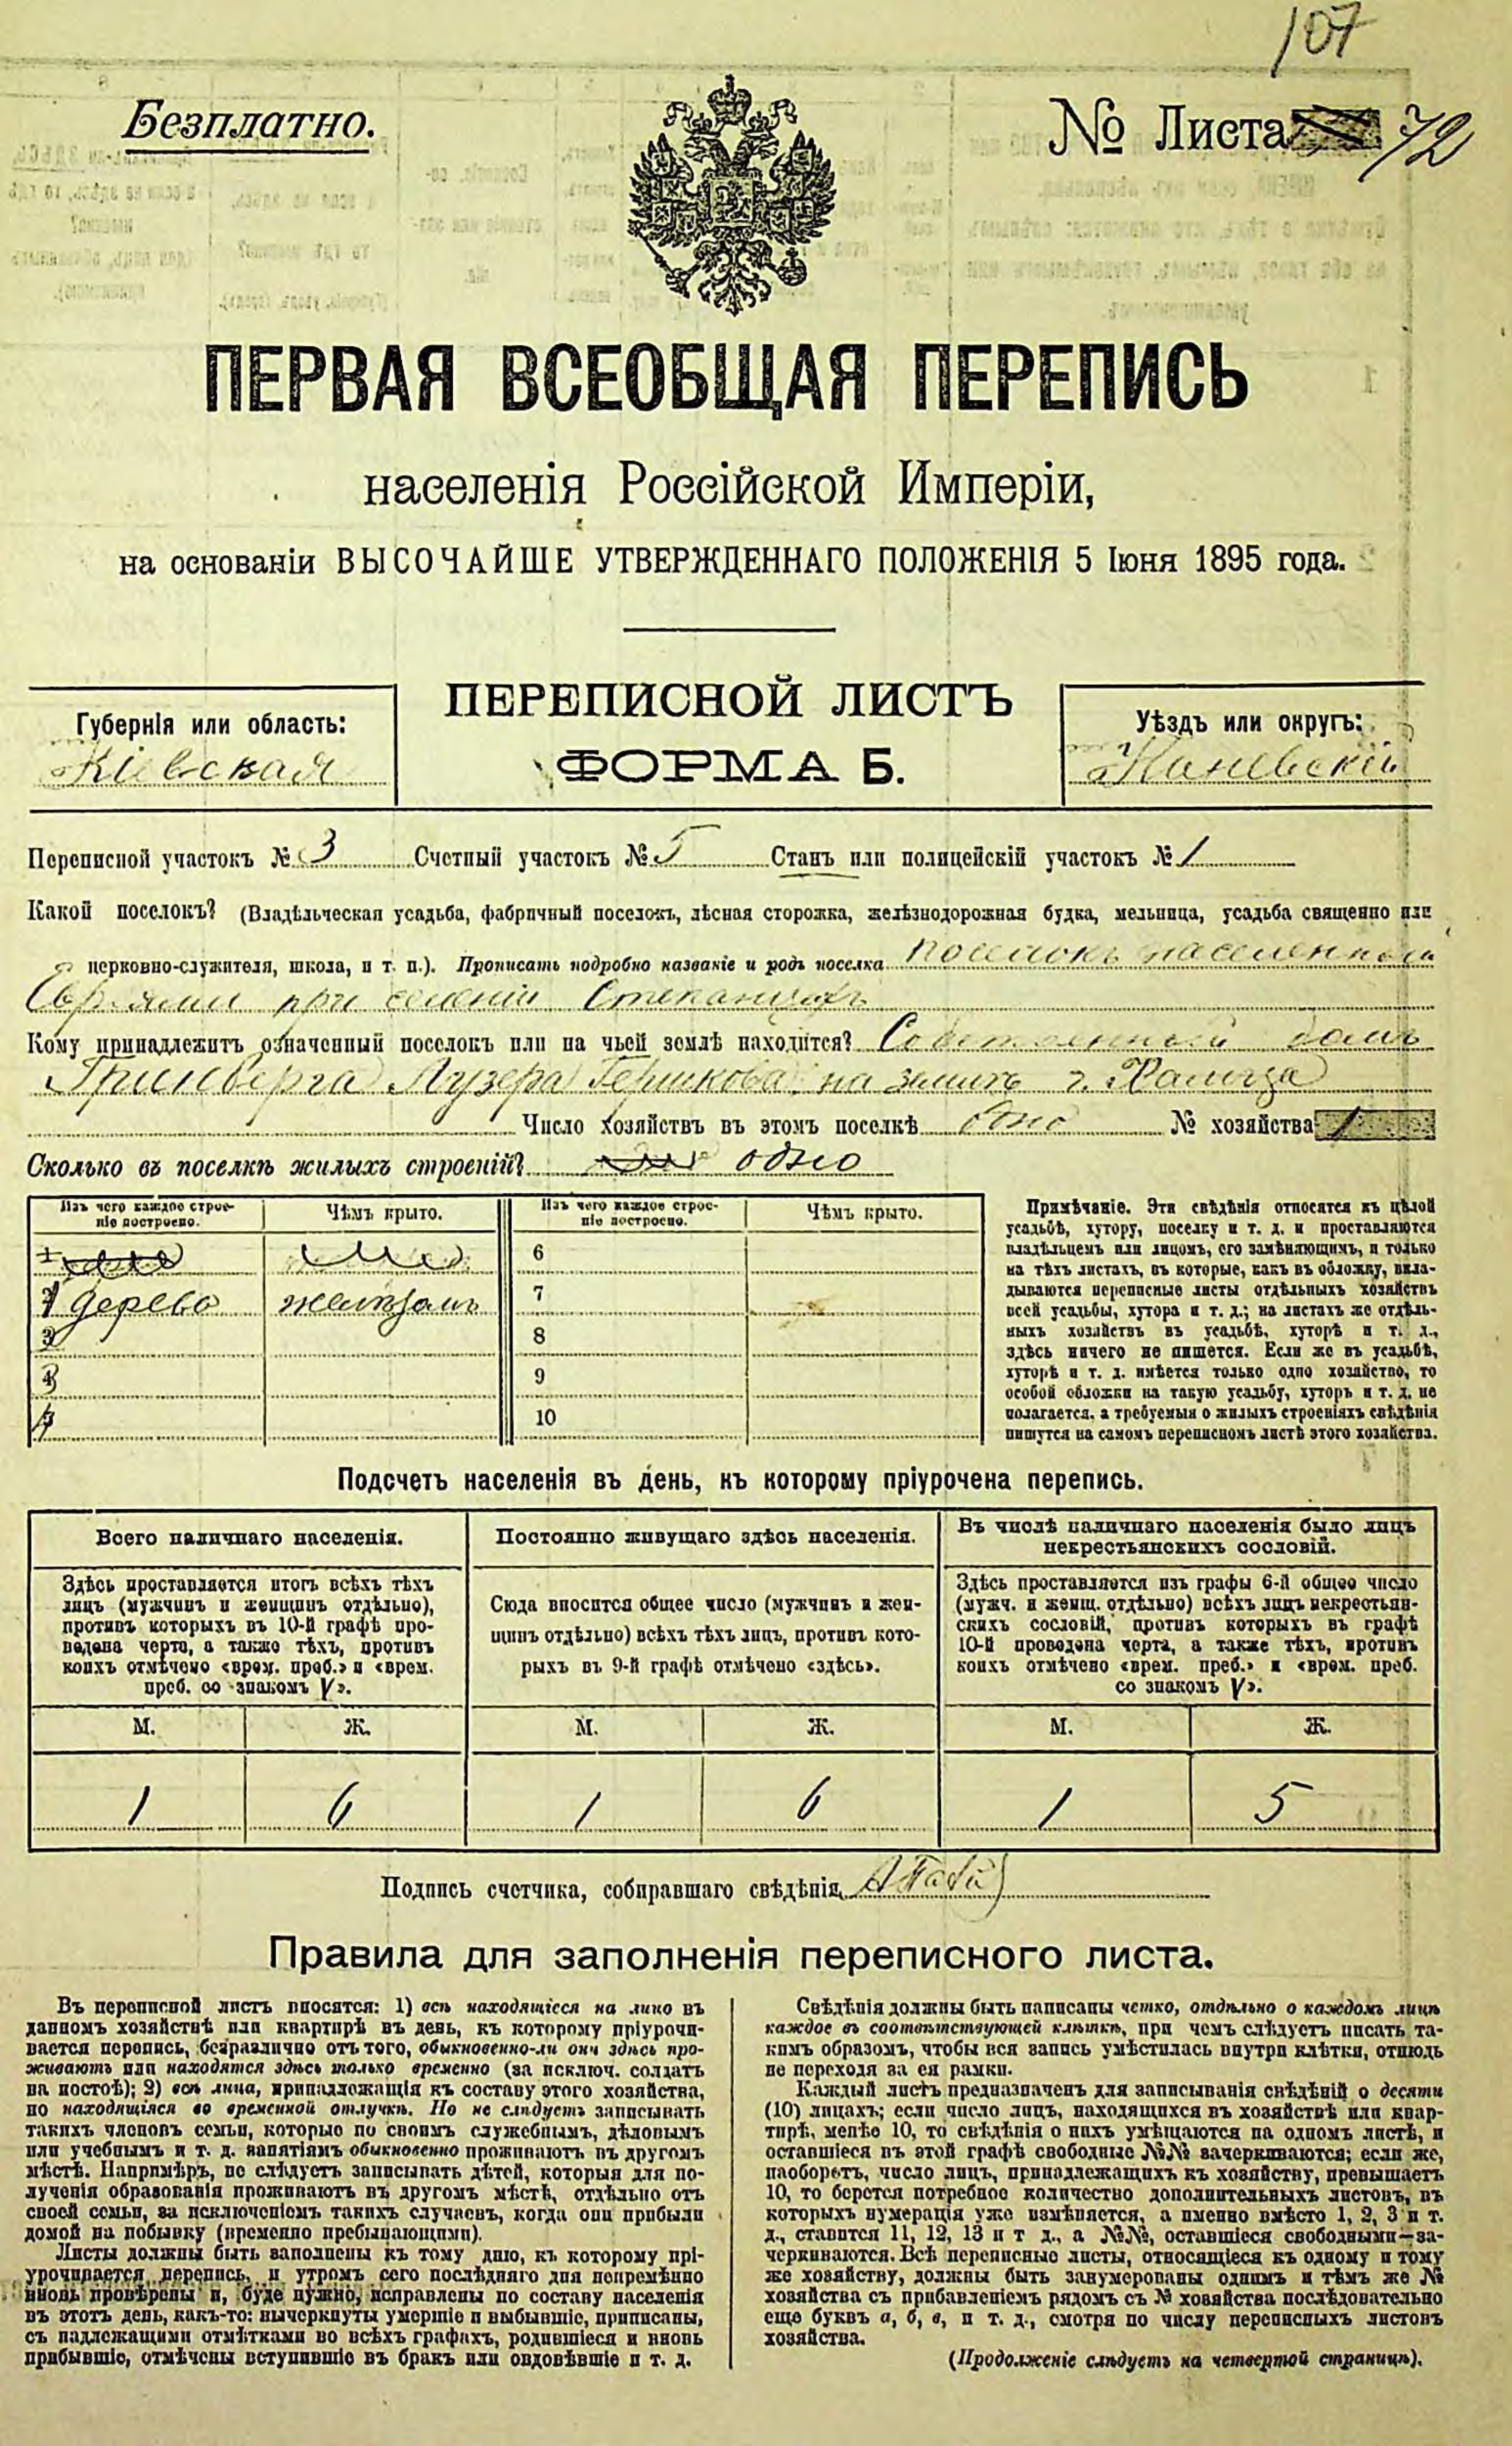 107
Безплатно.
№ Листа 72
ПЕРВАЯ ВСЕОБЩАЯ ПЕРЕПИСЬ
населенія Россійской Имперіи,
на основаніи ВЫСОЧАЙШЕ УТВЕРЖДЕННАГО ПОЛОЖЕНІЯ 5 Іюня 1895 года.
ПЕРЕПИСНОЙ ЛИСТЪ
ФОРМА Б.
Губернія или область:
Кіевская
Уѣздъ или округъ:
Каневскій
Переписной участокъ № 3 Счетный участокъ № 5 Станъ или полицейскій участокъ № 1
Какой поселокъ? (Владѣльческая усадьба, фабричный поселокъ, лѣсная сторожка, желѣзнодорожная будка, мельница, усадьба священно или
церковно-служителя, школа, и т. п.). Прописать подробно названіе и родъ поселка поселокъ населенный
Евреями при селеніи Степанцахъ
Кому принадлежитъ означенный поселокъ или на чьей землѣ находится? Собственный домъ
Гринберга Лузера Гершкова на землѣ г.
Число хозяйствъ въ этомъ поселкѣ одно № хозяйства 1
Сколько въ поселкѣ жилыхъ строеній? одно
Изъ чего каждое строе-
ніе построено. Чѣмъ крыто. Изъ чего каждое строе-
ніе построено. Чѣмъ крыто.
6
1 дерево желѣзомъ 7
2 8
3 9
4 10
Примѣчаніе. Эти свѣдѣнія относятся къ цѣлой
усадьбѣ, хутору, поселку и т. д. и проставляются
владѣльцемъ или лицомъ, его замѣняющимъ, и только
на тѣхъ листахъ, въ которые, какъ въ обложку, вкла-
дываются переписные листы отдѣльныхъ хозяйствъ
всей усадьбы, хутора и т. д.; на листахъ же отдѣль-
ныхъ хозяйствъ въ усадьбѣ, хуторѣ и т. д.,
здѣсь ничего не пишется. Если же въ усадьбѣ,
хуторѣ и т. д. имѣется только одно хозяйство, то
особой обложки на такую усадьбу, хуторъ и т. д. не
полагается, а требуемыя о жилыхъ строеніяхъ свѣдѣнія
пишутся на самомъ переписномъ листѣ этого хозяйства.
Подсчетъ населенія въ день, къ которому пріурочена перепись.
Всего наличнаго населенія.
Здѣсь проставляется итогъ всѣхъ тѣхъ
лицъ (мужчинъ и женщинъ отдѣльно),
противъ которыхъ въ 10-й графѣ про-
ведена черта, а также тѣхъ, противъ
коихъ отмѣчено «врем. преб.» и «врем.
преб. со знакомъ V».
Постоянно живущаго здѣсь населенія.
Сюда вносится общее число (мужчинъ и жен-
щинъ отдѣльно) всѣхъ тѣхъ лицъ, противъ кото-
рыхъ въ 9-й графѣ отмѣчено «здѣсь».
Въ числѣ наличнаго населенія было лицъ
некрестьянскихъ сословій.
Здѣсь проставляется изъ графы 6-й общее число
(мужч. и женщ. отдѣльно) всѣхъ лицъ некрестьян-
скихъ сословій, противъ которыхъ въ графѣ
10-й проведена черта, а также тѣхъ, противъ
коихъ отмѣчено «врем. преб.» и «врем. преб.
со знакомъ V».
М. Ж. М. Ж. М. Ж.
1 6 1 6 1 5
Подпись счетчика, собиравшаго свѣдѣнія,
Правила для заполненія переписного листа.
Въ переписной листъ вносятся: 1) всѣ находящіеся на лицо въ
данномъ хозяйствѣ или квартирѣ въ день, къ которому пріурочи-
вается перепись, безразлично отъ того, обыкновенно-ли они здѣсь про-
живаютъ или находятся здѣсь только временно (за исключ. солдатъ
на постоѣ); 2) всѣ лица, принадлежащія къ составу этого хозяйства,
но находящіяся во временной отлучкѣ. Но не слѣдуетъ записывать
такихъ членовъ семьи, которые по своимъ служебнымъ, дѣловымъ
или учебнымъ и т. д. занятіямъ обыкновенно проживаютъ въ другомъ
мѣстѣ. Напримѣръ, не слѣдуетъ записывать дѣтей, которыя для по-
лученія образованія проживаютъ въ другомъ мѣстѣ, отдѣльно отъ
своей семьи, за исключеніемъ такихъ случаевъ, когда они прибыли
домой на побывку (временно пребывающими).
Листы должны быть заполнены къ тому дню, къ которому прі-
урочивается перепись, и утромъ сего послѣдняго дня непремѣнно
вновь провѣрены и, буде нужно, исправлены по составу населенія
въ этотъ день, какъ-то: вычеркнуты умершіе и выбывшіе, приписаны,
съ надлежащими отмѣтками во всѣхъ графахъ, родившіеся и вновь
прибывшіе, отмѣчены вступившіе въ бракъ или овдовѣвшіе и т. д.
Свѣдѣнія должны быть написаны четко, отдѣльно о каждомъ лицѣ
каждое въ соотвѣтствующей клѣткѣ, при чемъ слѣдуетъ писать та-
кимъ образомъ, чтобы вся запись умѣстилась внутри клѣтки, отнюдь
не переходя за ея рамки.
Каждый листъ предназначенъ для записыванія свѣдѣній о десяти
(10) лицахъ; если число лицъ, находящихся въ хозяйствѣ или квар-
тирѣ, менѣе 10, то свѣдѣнія о нихъ умѣщаются на одномъ листѣ, и
оставшіеся въ этой графѣ свободные №№ зачеркиваются; если же,
наоборотъ, число лицъ, принадлежащихъ къ хозяйству, превышаетъ
10, то берется потребное количество дополнительныхъ листовъ, въ
которыхъ нумерація уже измѣняется, а именно вмѣсто 1, 2, 3 и т.
д., ставится 11, 12, 13 и т д., а №№, оставшіеся свободными—за-
черкиваются. Всѣ переписные листы, относящіеся къ одному и тому
же хозяйству, должны быть занумерованы однимъ и тѣмъ же №
хозяйства съ прибавленіемъ рядомъ съ № хозяйства послѣдовательно
еще буквъ а, б, в, и т. д., смотря по числу переписныхъ листовъ
хозяйства.
(Продолженіе слѣдуетъ на четвертой страницѣ).